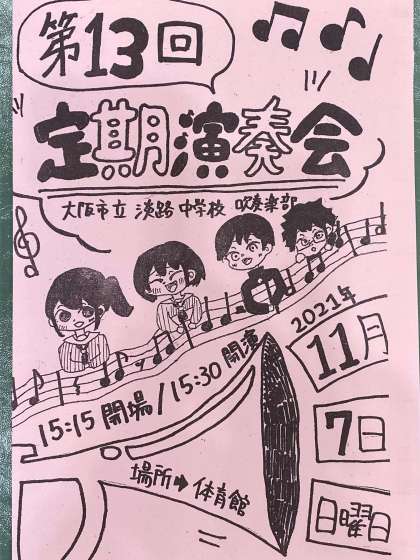 第13回
定期演奏会
大阪市立 淡路中学校 吹奏楽部
中
2021年
11月
7日
日曜日
15:15 開場/15:30 開演
場所➡体育館